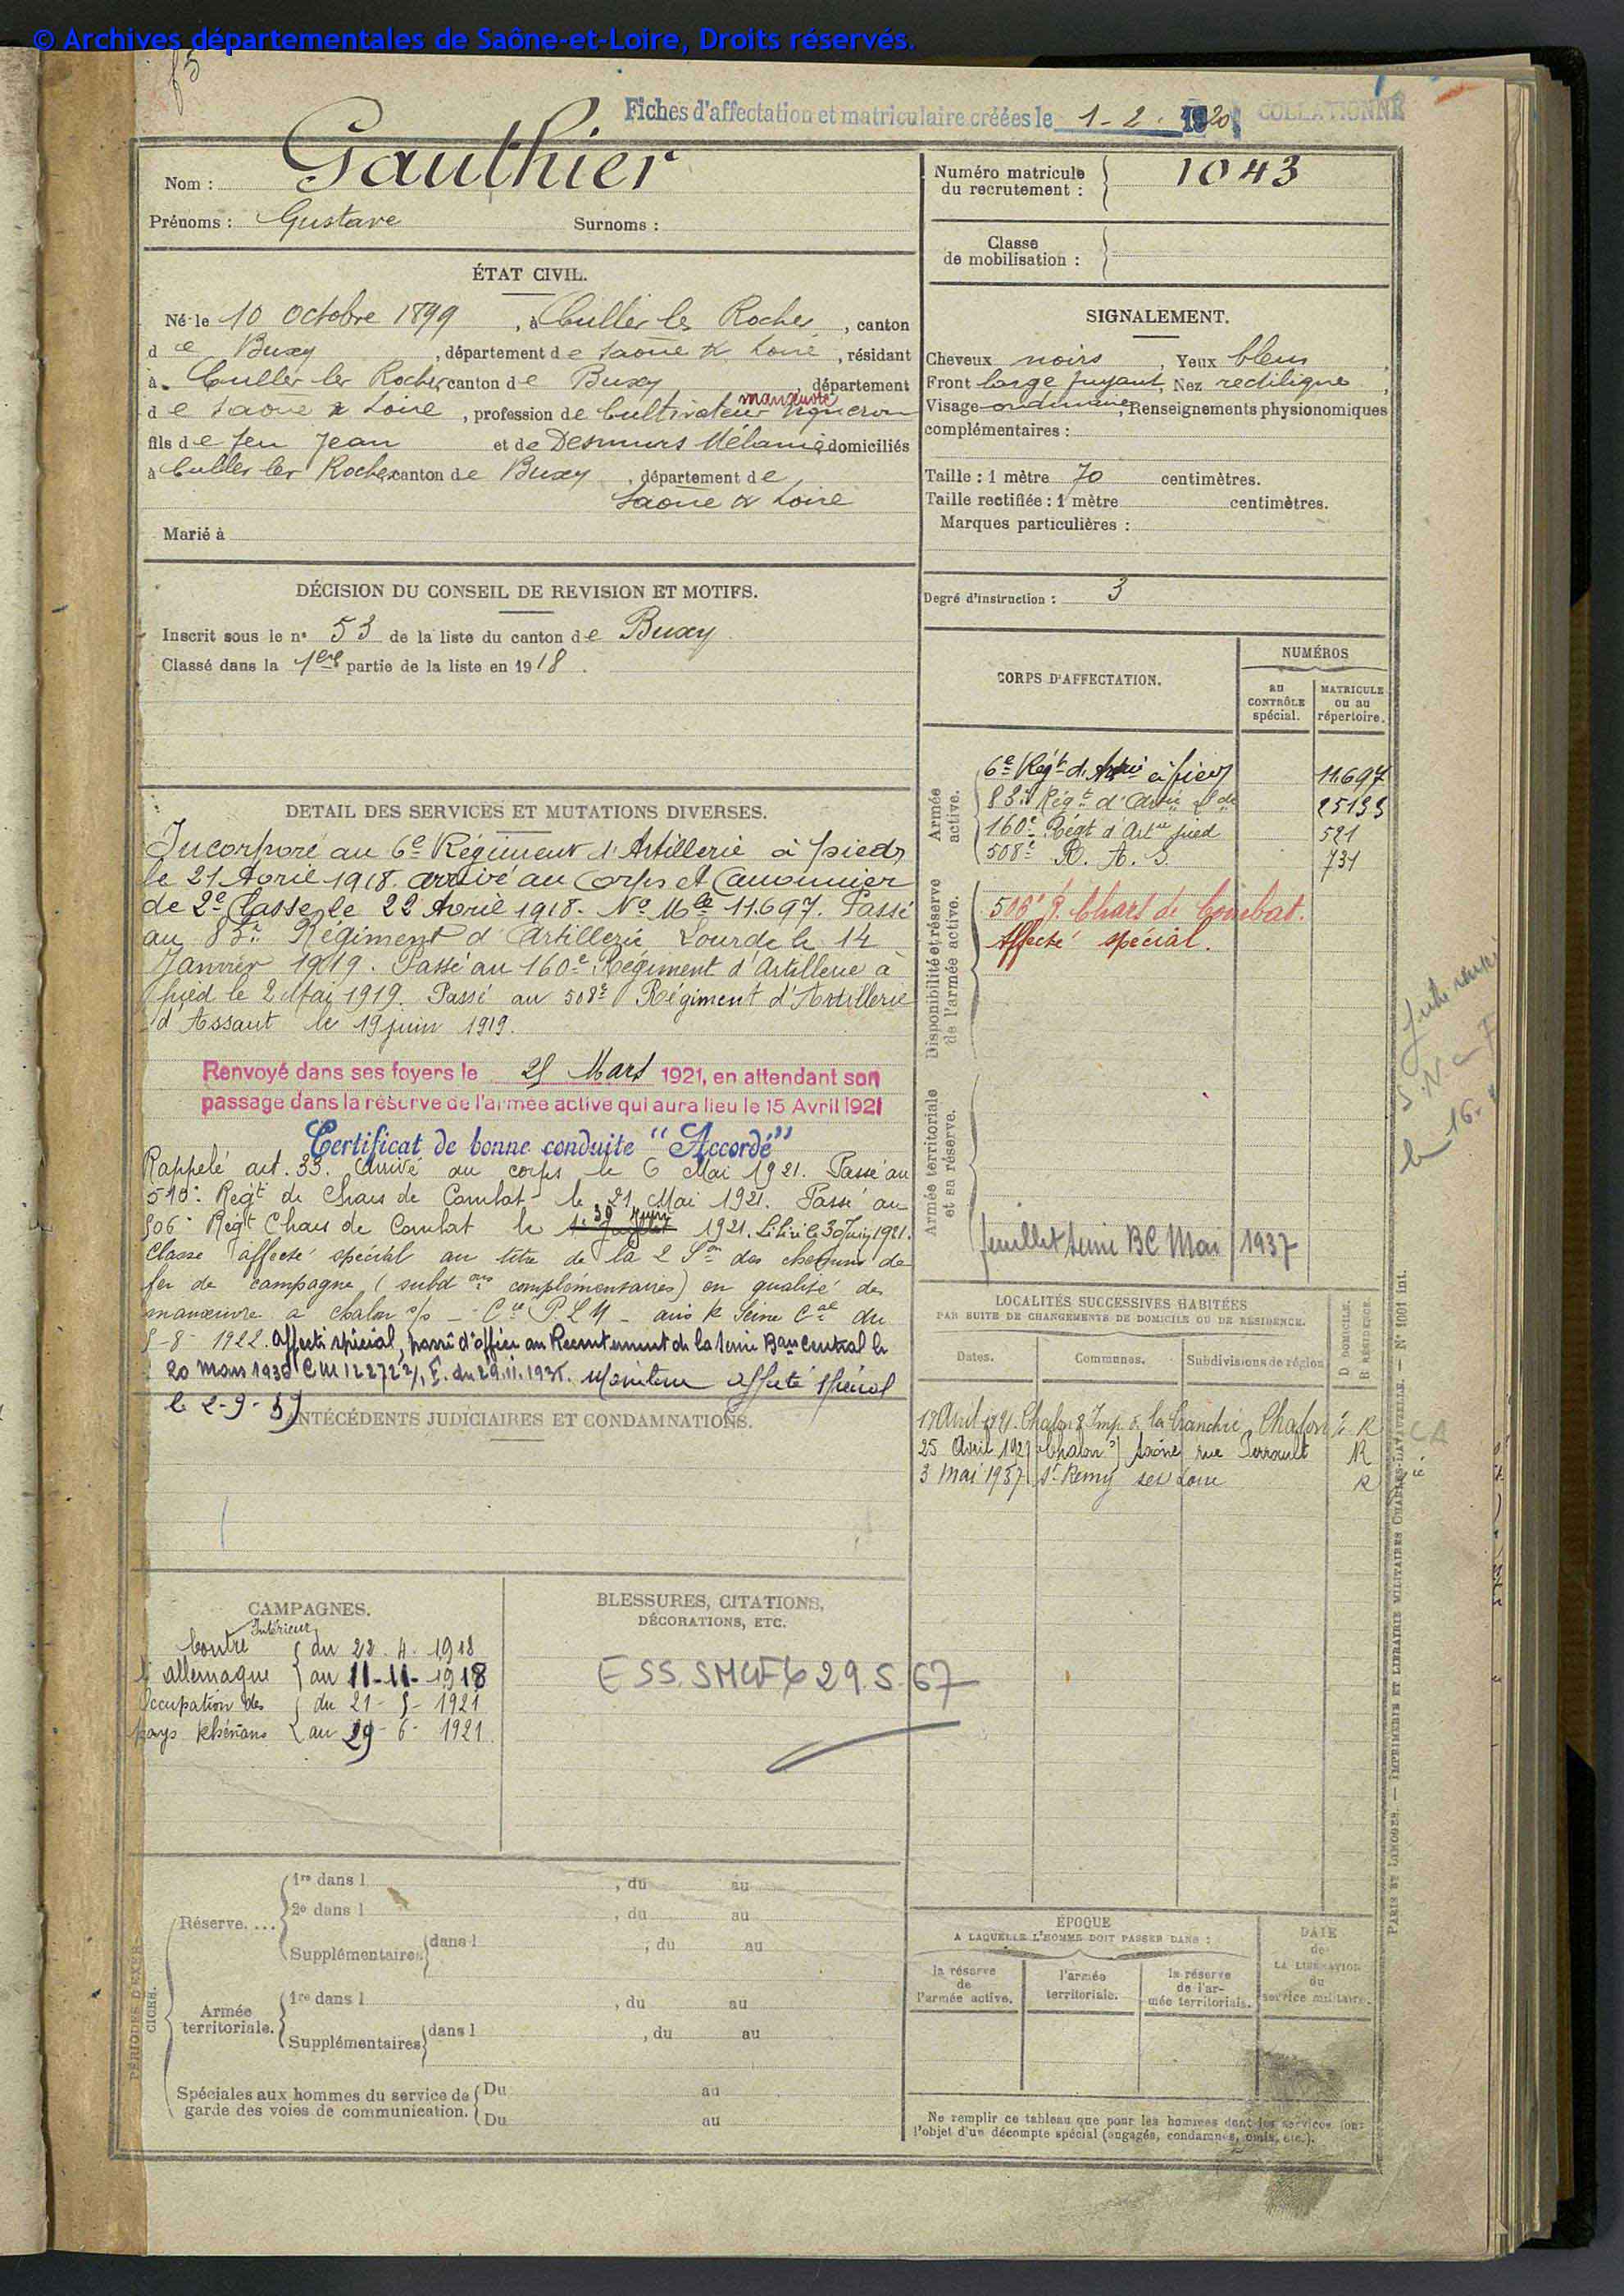 © Archives départementales de Saône-et-Loire, Droits réservés.
Fiches d'affectation et matriculaire créées le 1-2. 1920
COLLATIONNÉ
Nom : Gauthier
Prénoms : Gustave Surnoms :
ÉTAT CIVIL.
Né le 10 Octobre 1899, à Culles les Roches, canton
de Buxy, département de Saône & Loire, résidant
à Culles les Roches, canton de Buxy, département
manœuvre
de Saône & Loire, profession de Cultivateur vigneron
fils de feu Jean et de Desmurs Mélanie domiciliés
à Culles les Roches canton de Buxy, département de
Saône & Loire
Marié à
DÉCISION DU CONSEIL DE REVISION ET MOTIFS.
Inscrit sous le n° 53 de la liste du canton de Buxy.
Classé dans la 1ere partie de la liste en 1918.
DÉTAIL DES SERVICES ET MUTATIONS DIVERSES.
Incorporé au 6e Régiment d'Artillerie à pied
le 21 Avril 1918. arrivé au Corps et Canonnier
de 2e Classe le 22 Avril 1918. No Mle 11.697. Passé
au 83e Régiment d'Artillerie Lourde le 14
Janvier 1919. Passé au 160e Régiment d'Artillerie à
pied le 2 Mai 1919. Passé au 508e Régiment d'Artillerie
d'Assaut le 19 juin 1919.
Renvoyé dans ses foyers le 25 Mars 1921, en attendant son
passage dans la réserve de l'armée active qui aura lieu le 15 Avril 1921
Certificat de bonne conduite "Accordé"
Rappelé art. 33. Arrivé au corps le 6 Mai 1921. Passé au
510e Régt de Chars de Combat le 21 Mai 1921. Passé au
30 Juin
506e Régt Chars de Combat le 1921. Libéré le 30 Juin 1921.
Classé affecté spécial au titre de la 2 Son des chemins de
fer de campagne (subdons complémentaires) en qualité de
manœuvre à Chalon s/s - Cie P L M - avis R Seine Cal du
5-8-1922. Affecté spécial, passé d'office au Recrutement de la Seine Bau Central le
20 mars 1936 C M 12272 2/1. E. du 29.11.1935. Maintenu affecté spécial
le 2-9-39
ANTÉCÉDENTS JUDICIAIRES ET CONDAMNATIONS.
CAMPAGNES.
Intérieur
Contre du 22.4.1918
l'allemagne au 11-11-1918
Occupation des du 21-5-1921
pays Rhénans au 29-6-1921
BLESSURES, CITATIONS,
DÉCORATIONS, ETC.
PÉRIODES D'EXERCICES.
Réserve....
1re dans l , du au
2e dans l , du au
Supplémentaires dans l , du au
Armée territoriale.
1re dans l , du au
Supplémentaires dans l , du au
Spéciales aux hommes du service de
garde des voies de communication.
Du au
Du au
Numéro matricule
du recrutement : 1043
Classe
de mobilisation :
SIGNALEMENT.
Cheveux noirs, Yeux bleus,
Front large fuyant, Nez rectiligne,
Visage ordinaire, Renseignements physionomiques
complémentaires :
Taille : 1 mètre 70 centimètres.
Taille rectifiée : 1 mètre centimètres.
Marques particulières :
Degré d'instruction : 3
CORPS D'AFFECTATION.
NUMÉROS
au
CONTRÔLE
spécial.
MATRICULE
ou au
répertoire.
Armée
active.
6e Régt d'Artie à pied 11.697
83e Régt d'Artie Lde 25133
160e Régt d'Artie pied 521
508e R. A. S. 731
Disponibilité et réserve
de l'armée active.
506e R. Chars de Combat.
Affecté spécial.
Armée territoriale
et sa réserve.
feuillet Seine BC Mai 1937
le 16.
LOCALITÉS SUCCESSIVES HABITÉES
PAR SUITE DE CHANGEMENTS DE DOMICILE OU DE RÉSIDENCE.
Dates. Communes. Subdivisions de région
D DOMICILE.
R RÉSIDENCE.
Chalon R
25 Avril 1921 Chalon s/ Saône rue Perrault R
3 Mai 1937 St Remy R
ÉPOQUE
A LAQUELLE L'HOMME DOIT PASSER DANS :
la réserve
de
l'armée active.
l'armée
territoriale.
la réserve
de l'armée territoriale.
DATE
de
LA LIBÉRATION
du
service militaire.
Ne remplir ce tableau que pour les hommes dont les services font
l'objet d'un décompte spécial (engagés, condamnés, omis, etc.).
PARIS ET LIMOGES. — IMPRIMERIE ET LIBRAIRIE MILITAIRES CHARLES-LAVAUZELLE. — N° 1001 int.